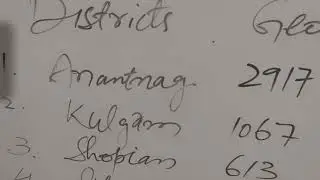 Districts Geo
1. Anantnag 2917
2. Kulgam 1067
3. Shopian 613
4.